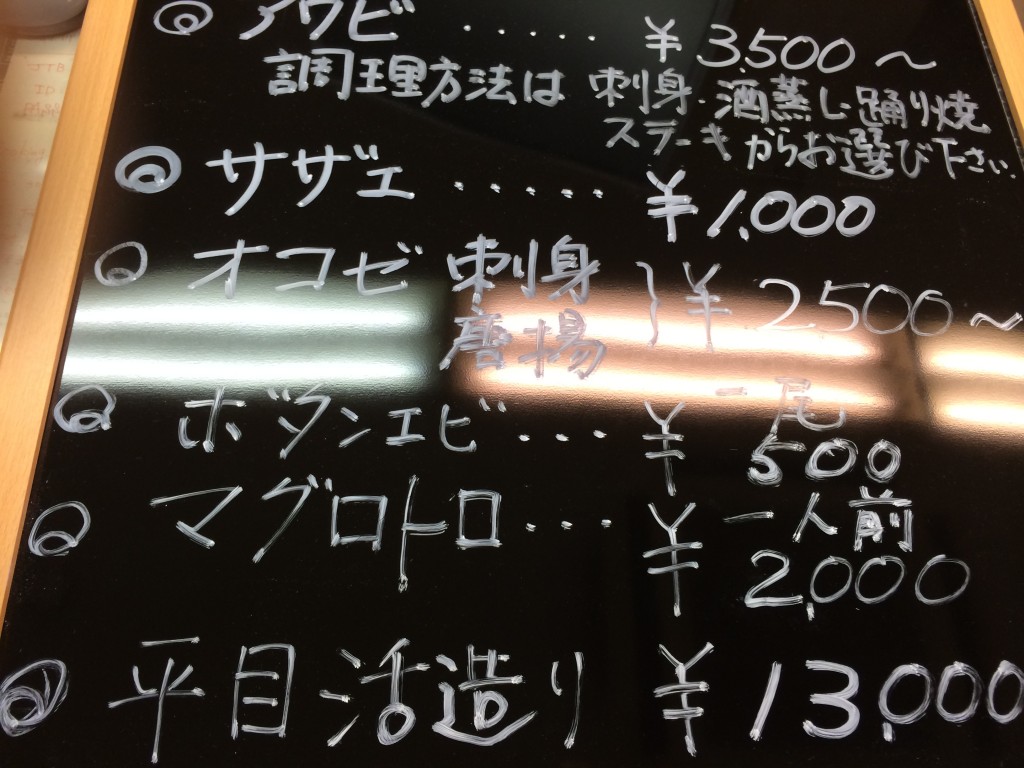 ◎ アワビ ・・・・・ ¥3500～
調理方法は 刺身・酒蒸し・踊り焼
ステーキからお選び下さい
◎ サザエ ・・・・・ ¥1,000
◎ オコゼ 刺身
唐揚 } ¥2500～
◎ ボタンエビ・・・ ¥ 一尾 500
◎ マグロトロ・・・ ¥ 一人前 2,000
◎ 平目活造り ¥13,000